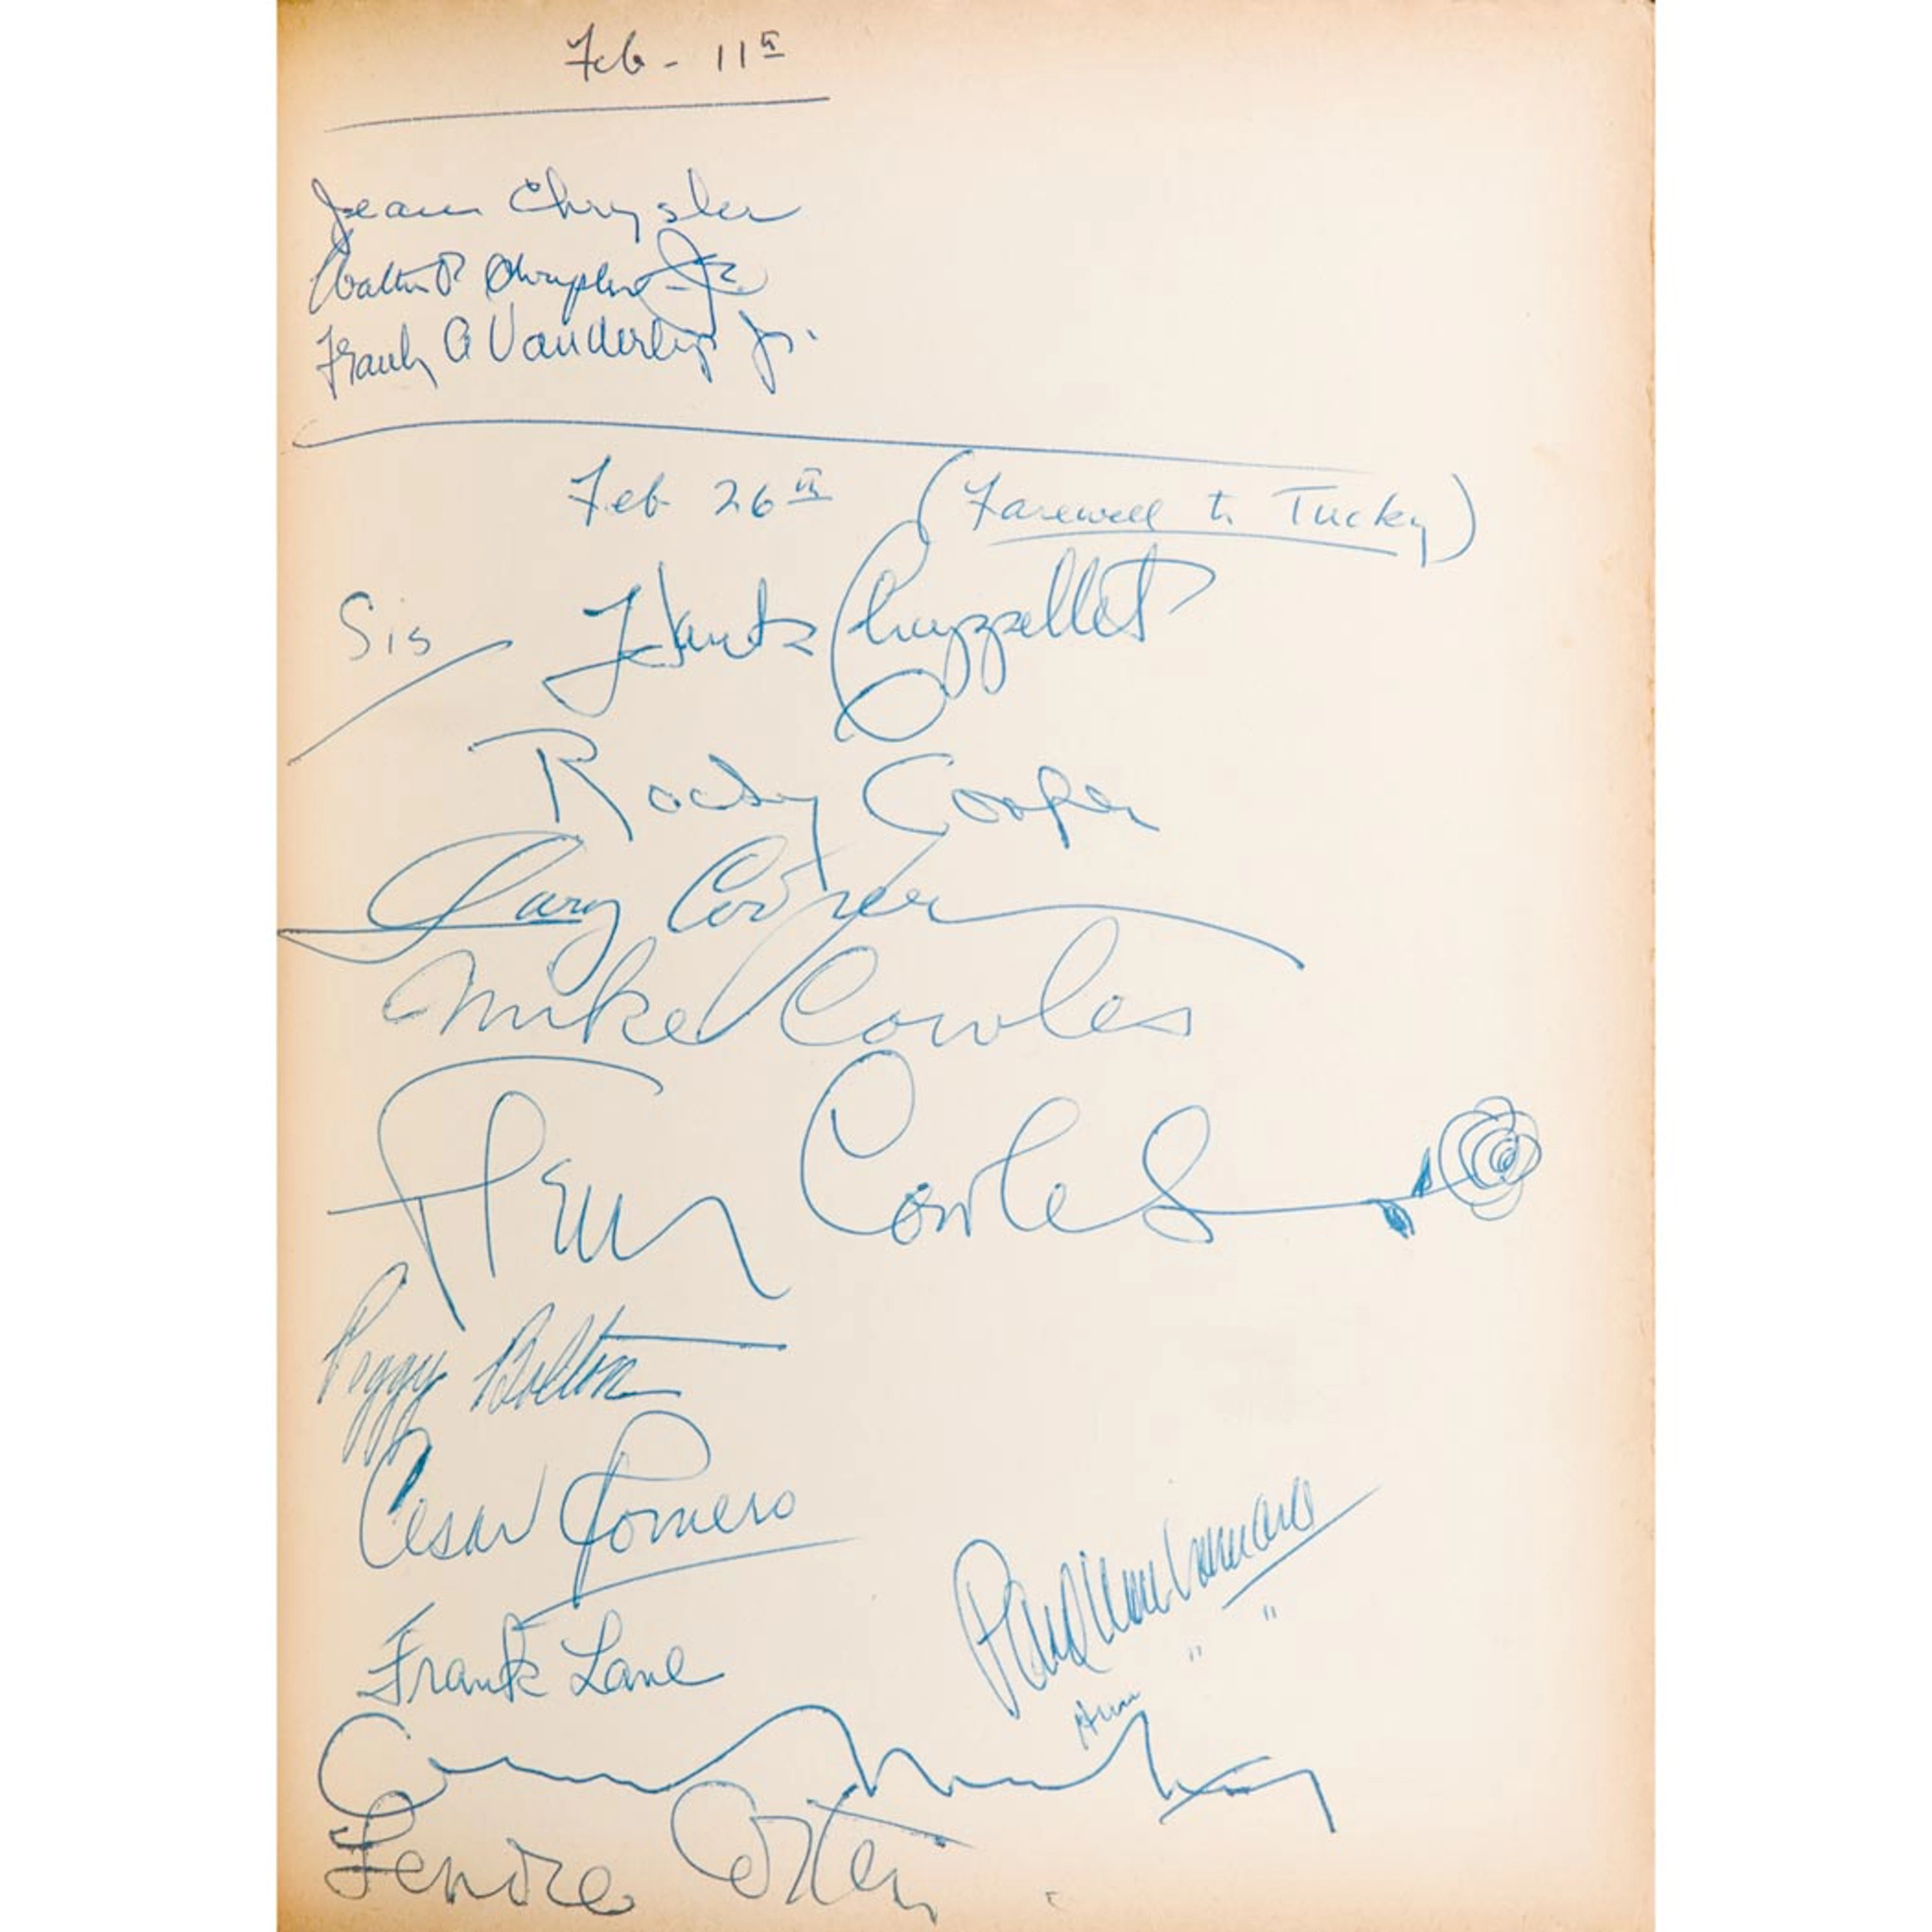 Feb - 11th
Jean Chrysler
Walter P Chrysler Jr.
Frank A Vanderlip Jr.
Feb 26th (Farewell to Tucky)
Sis Hank Chappellet
Rocky Cooper
Gary Cooper
Mike Cowles
Fleur Cowles
Peggy Bolton
Cesar Romero
Frank Lane
Lenore Cotten